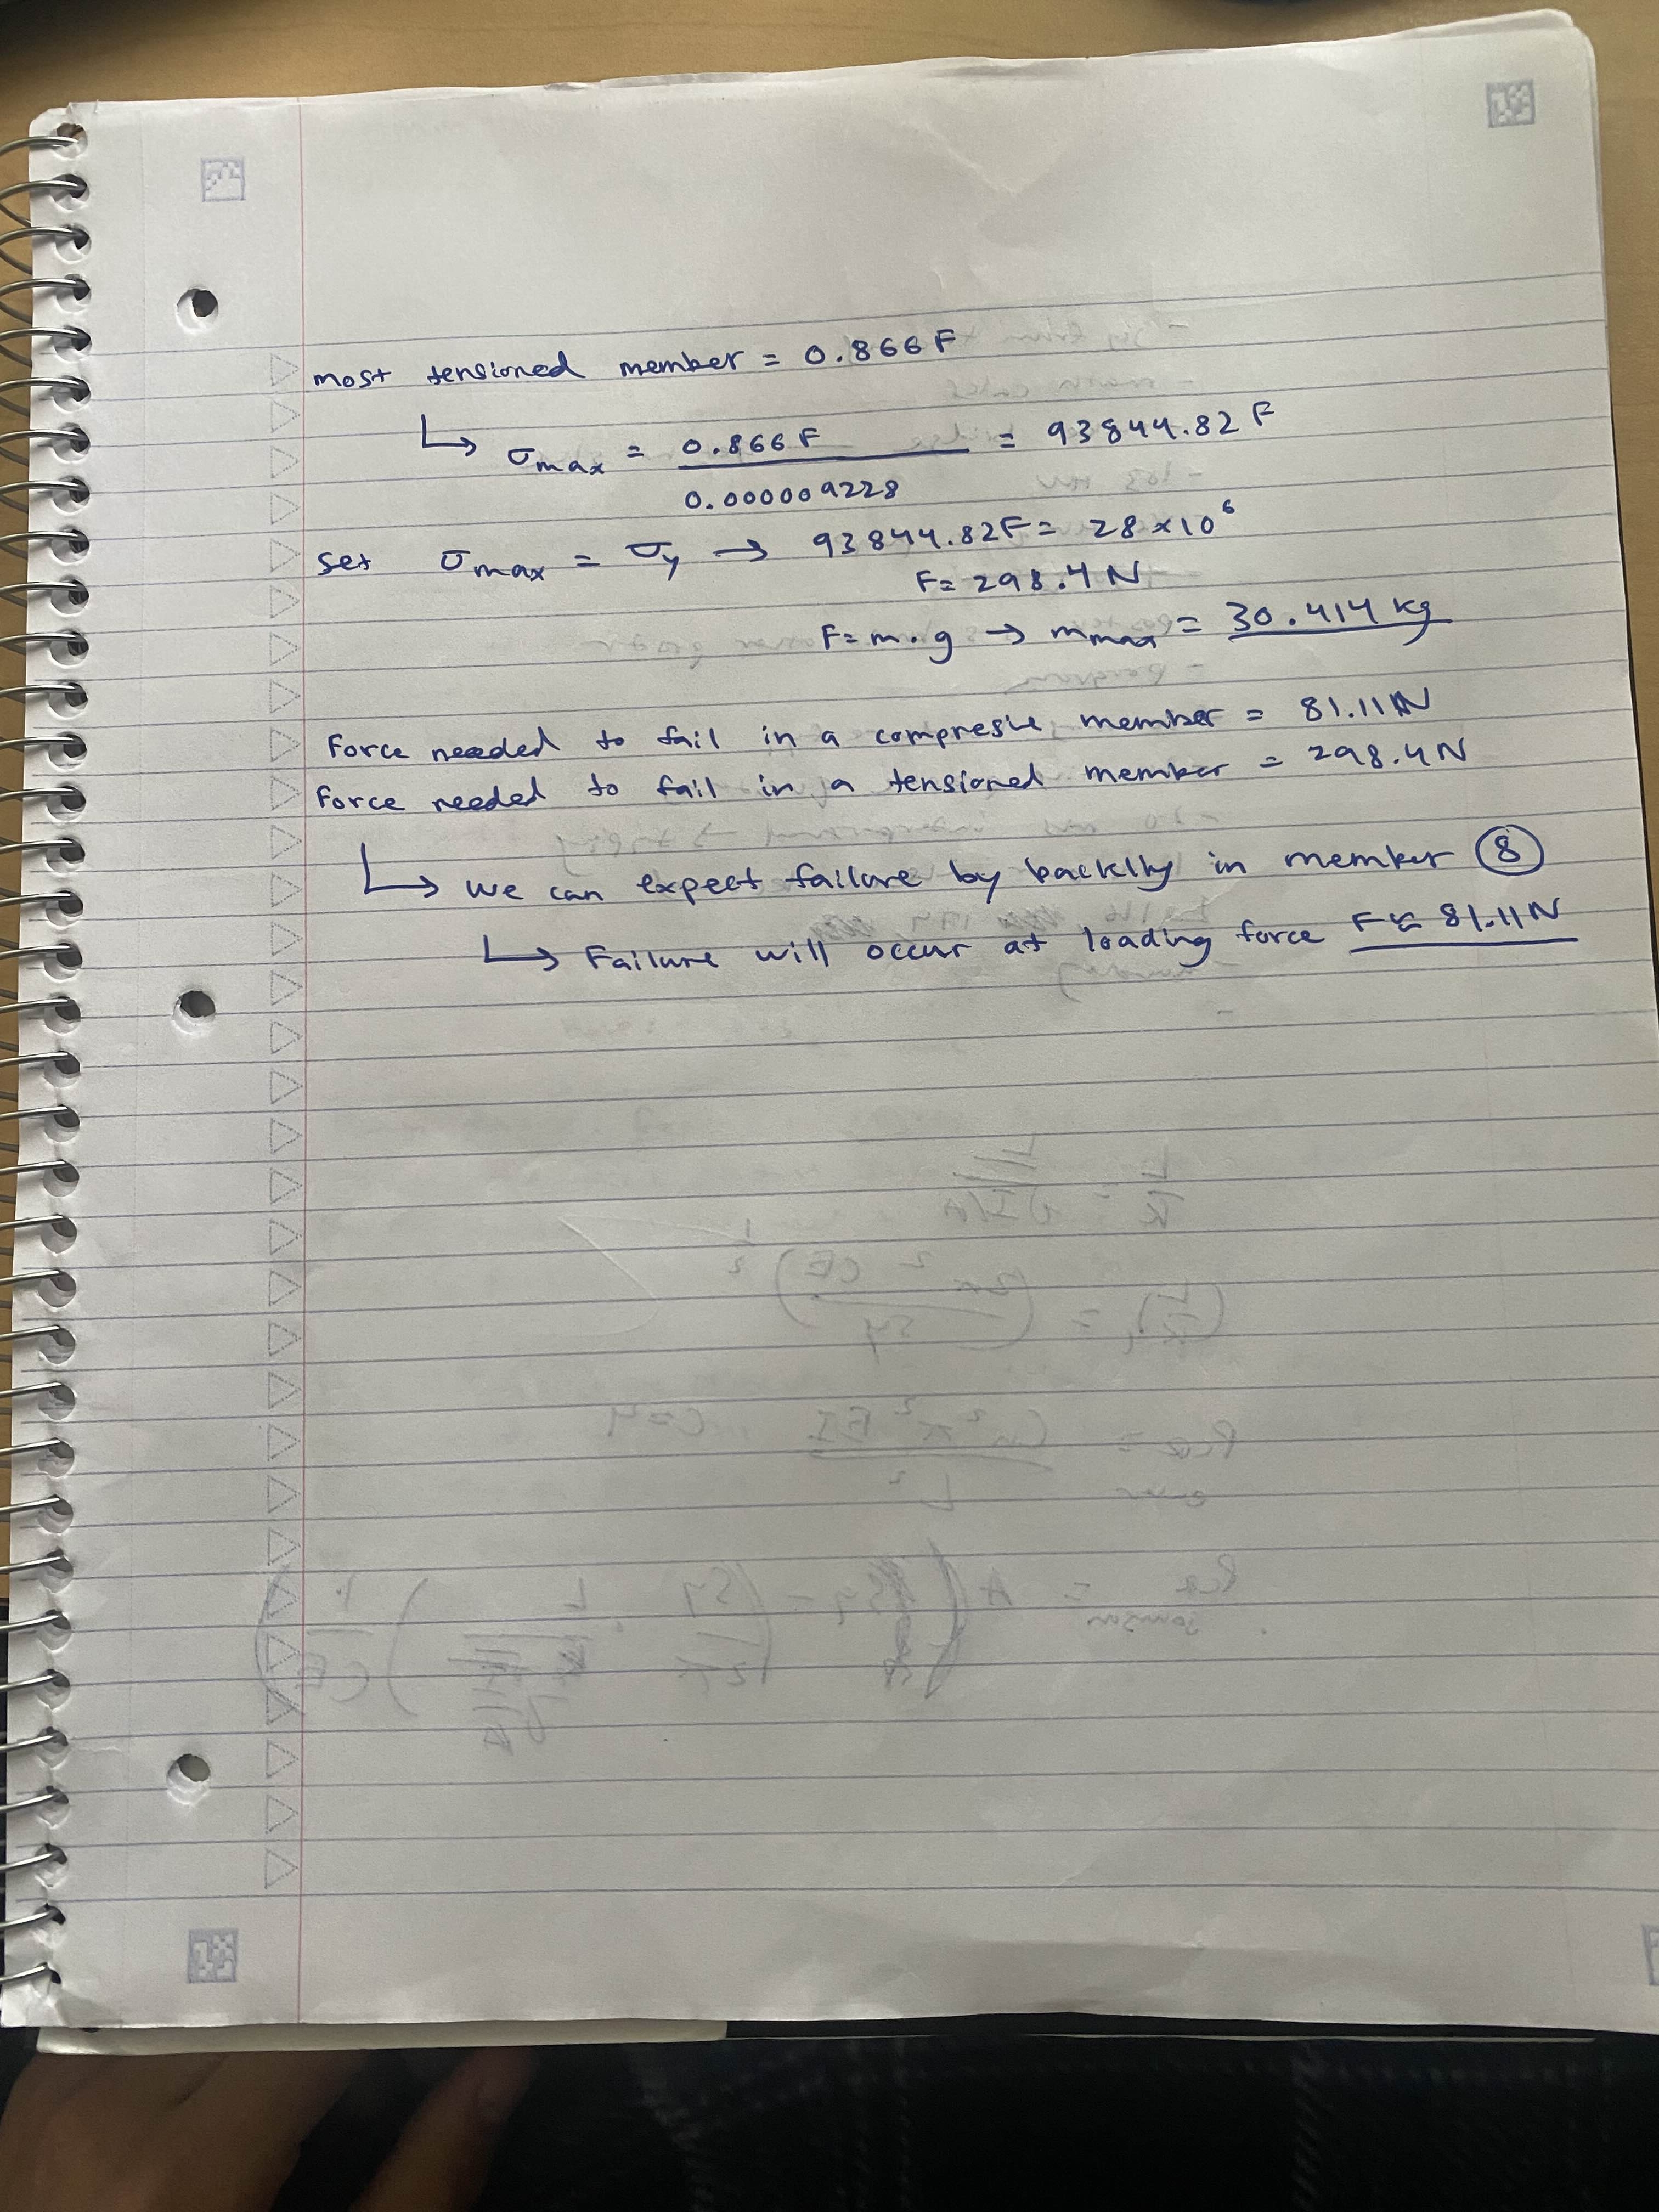 most tensioned member = 0.866F
↳ σmax = 0.866F / 0.000009228 = 93844.82 F
set σmax = σy → 93844.82F = 28×10⁶
F= 298.4 N
F= m·g → mmax = 30.414 kg
Force needed to fail in a compresive member = 81.11N
Force needed to fail in a tensioned member = 298.4N
↳ we can expect failure by in member ⑧
↳ Failure will occur at loading force F≈ 81.11N